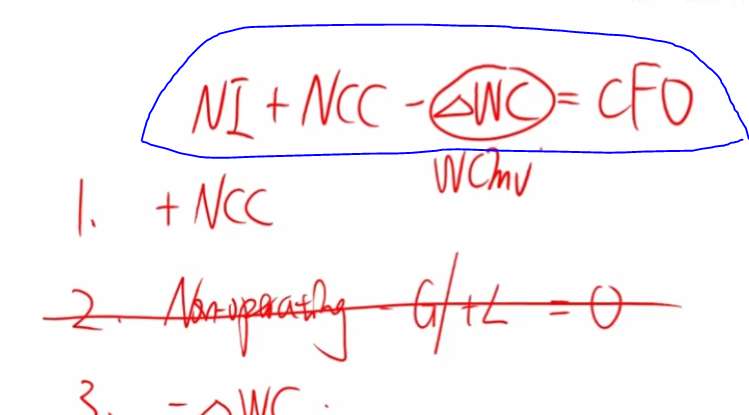 NI + NCC - △WC = CFO
WCInv
1. + NCC
2. Non-operating - G/+L = 0
3. - △WC.